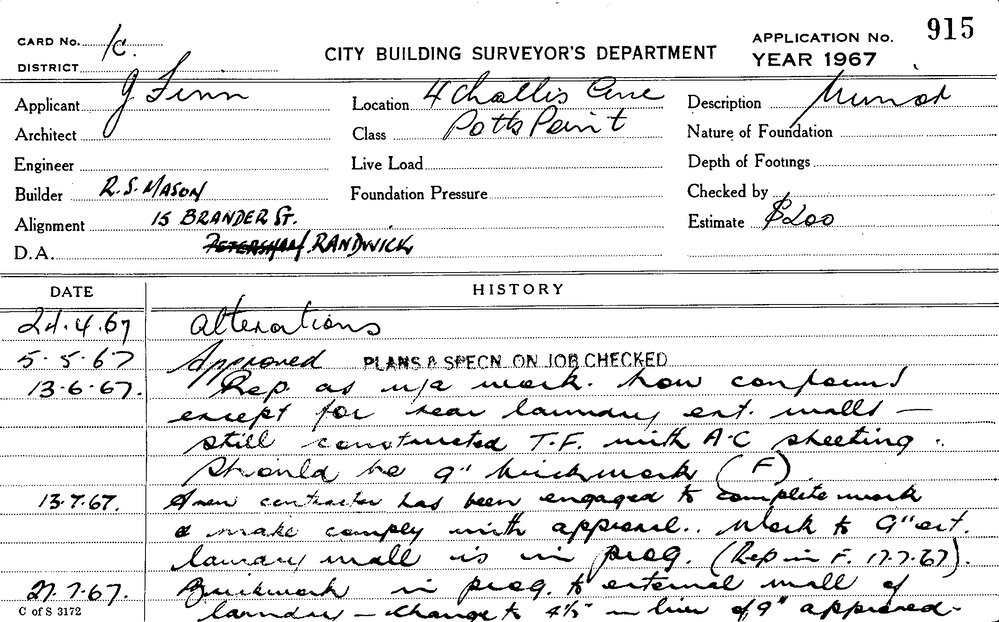 CARD No. 1C.
DISTRICT
CITY BUILDING SURVEYOR'S DEPARTMENT
APPLICATION No. 915
YEAR 1967
Applicant J Finn
Location 4 Challis Ave
Description
Architect
Class Potts Point
Nature of Foundation
Engineer
Live Load
Depth of Footings
Builder R.S. MASON
Foundation Pressure
Checked by
Alignment 15 BRANDER ST.
Estimate $200
D.A. PETERSHAM RANDWICK
DATE HISTORY
24.4.67 alterations
5.5.67 Approved PLANS & SPECN. ON JOB CHECKED
13.6.67. Rep. as u/a work. now conforms
except for rear laundry ext. walls —
still constructed T.F. with A-C sheeting.
Should be 9" brickwork (F)
13.7.67. A new contractor has been engaged to complete work
& make comply with approval.. Work to 9" ext.
laundry wall is in prog. (Rep in F. 17.7.67).
27.7.67. Brickwork in prog. to external wall of
C of S 3172 laundry — change to 4½" in lieu of 9" approved-